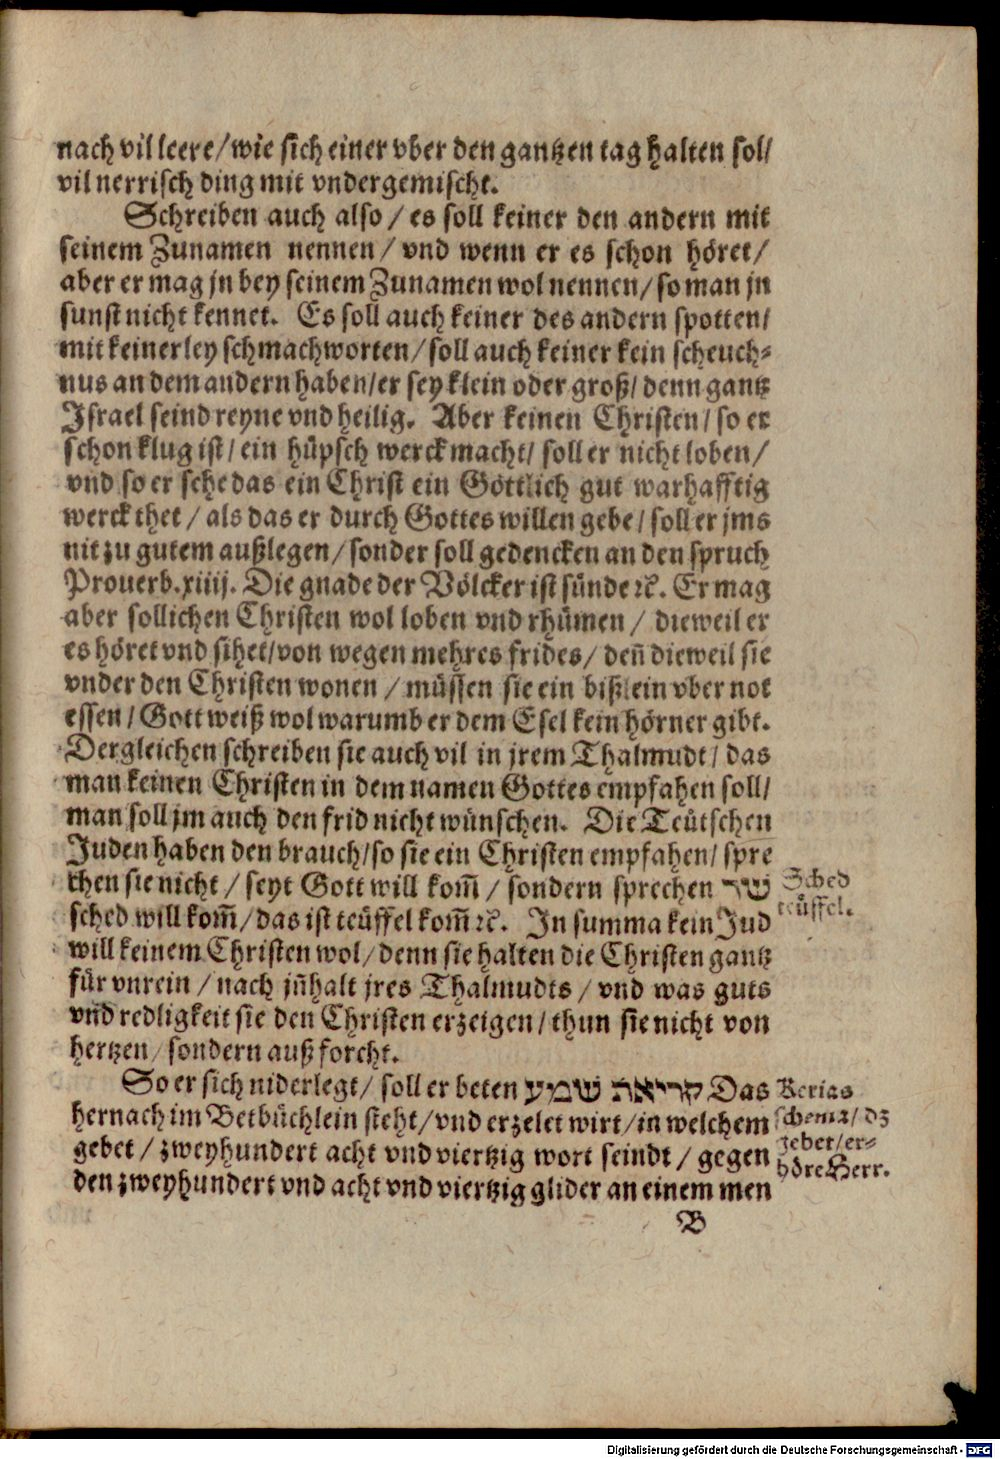 nach vil leere/wie sich einer vber den gantzen tag halten sol/
vil nerrisch ding mit vndergemischt.
Schreiben auch also / es soll keiner den andern mit
seinem Zunamen nennen / vnd wenn er es schon höret/
aber er mag jn bey seinem Zunamen wol nennen/ so man jn
sunst nicht kennet. Es soll auch keiner des andern spotten/
mit keinerley schmachworten/ soll auch keiner kein scheuch-
nus an dem andern haben/er sey klein oder groß/ denn gantz
Israel seind reyne vnd heilig. Aber keinen Christen/ so er
schon klug ist/ ein hüpsch werck macht/ soll er nicht loben/
vnd so er sehe das ein Christ ein Göttlich gut warhafftig
werck thet / als das er durch Gottes willen gebe/ soll er jms
nit zu gutem außlegen/ sonder soll gedencken an den spruch
Prouerb.xiiij. Die gnade der Völcker ist sünde ⁊c. Er mag
aber sollichen Christen wol loben vnd rhümen / dieweil er
es höret vnd sihet/von wegen mehres frides/ deñ dieweil sie
vnder den Christen wonen / müssen sie ein bißlein vber not
essen/ Gott weiß wol warumb er dem Esel kein hörner gibt.
Dergleichen schreiben sie auch vil in jrem Thalmudt/ das
man keinen Christen in dem namen Gottes empfahen soll/
man soll jm auch den frid nicht wünschen. Die Teütschen
Juden haben den brauch/so sie ein Christen empfahen/ spre
chen sie nicht / seyt Gott will kom̄ / sondern sprechen שד
sched will kom̄/ das ist teüffel kom̄ ⁊c. In summa kein Jud
will keinem Christen wol/ denn sie halten die Christen gantz
für vnrein / nach jñhalt jres Thalmudts / vnd was guts
vnd redligkeit sie den Christen erzeigen/ thun sie nicht von
hertzen/ sondern auß forcht.
So er sich niderlegt/ soll er beten קריאת שמע Das
hernach im Betbüchlein steht/ vnd erzelet wirt/in welchem
gebet / zweyhundert acht vnd viertzig wort seindt / gegen
den zweyhundert vnd acht vnd viertzig glider an einem men
B
Sched
teüffel.
Kerias
schema/ dz
gebet/er-
höre Herr.
Digitalisierung gefördert durch die Deutsche Forschungsgemeinschaft - DFG